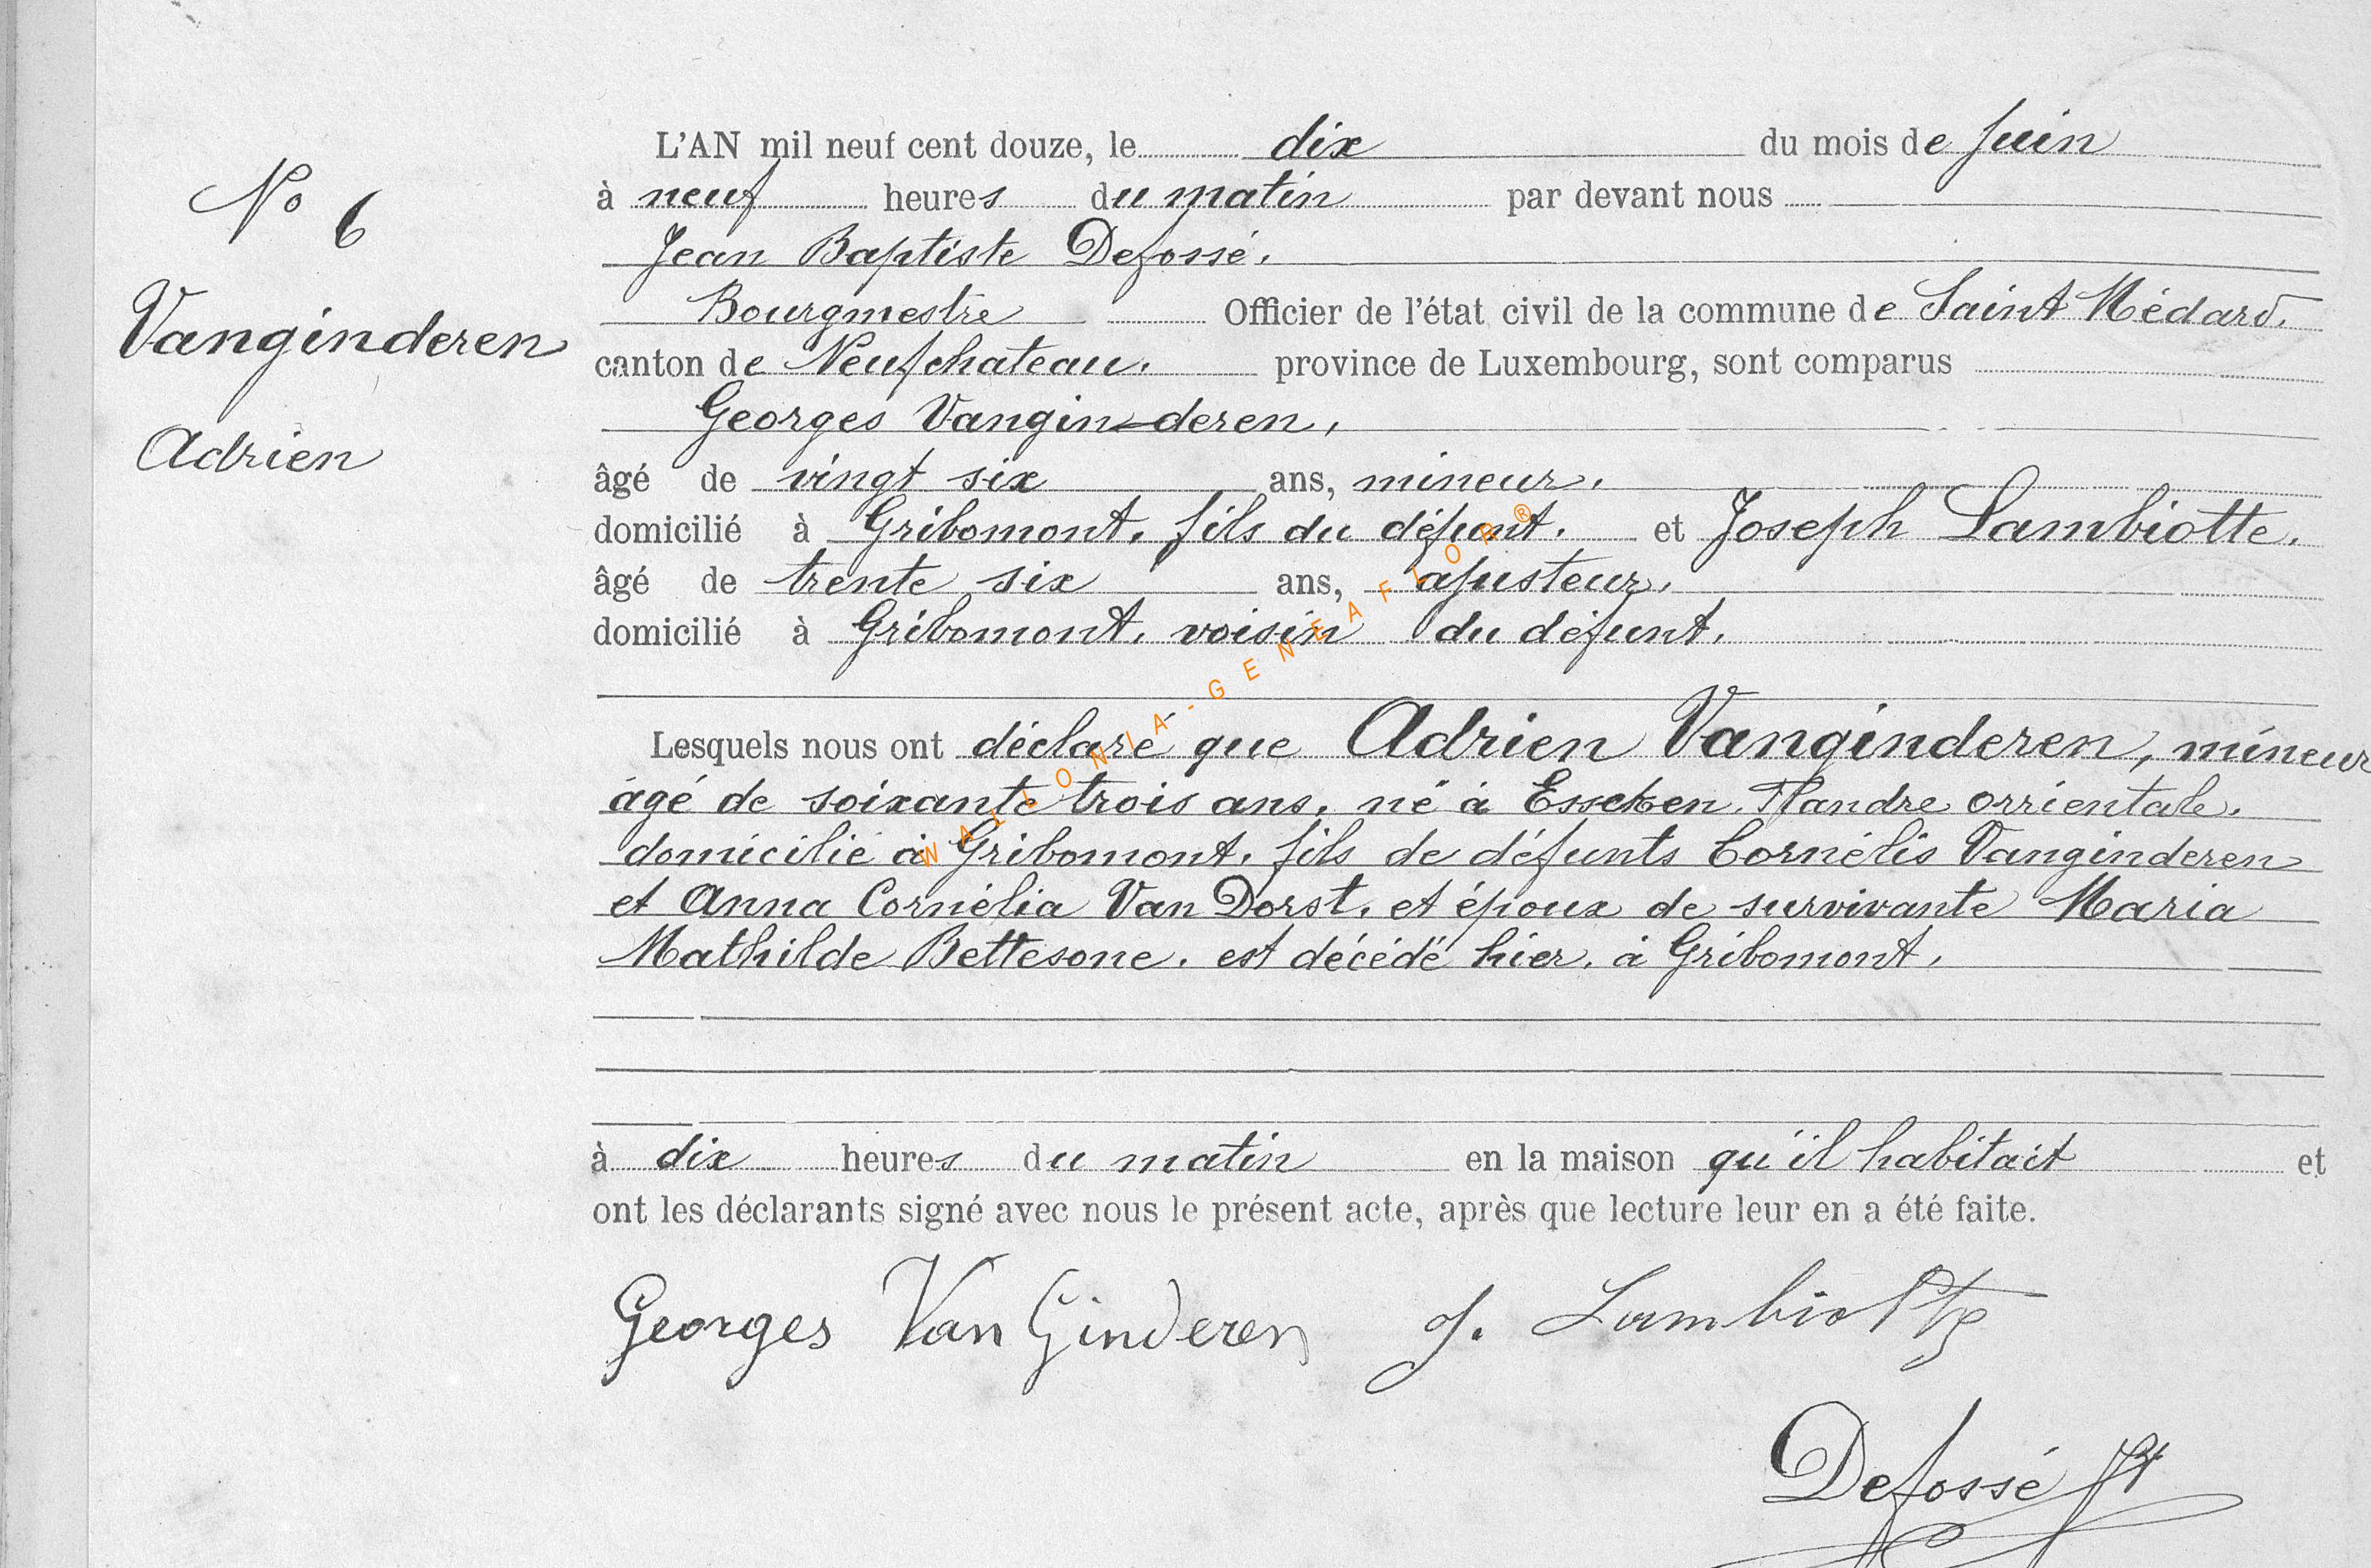 No 6
Vanginderen
Adrien
L'AN mil neuf cent douze, le dix du mois de Juin
à neuf heures du matin par devant nous
Jean Baptiste Defossé.
Bourgmestre Officier de l'état civil de la commune de Saint Médard.
canton de Neufchateau. province de Luxembourg, sont comparus
Georges Vanginderen,
âgé de vingt six ans, mineur.
domicilié à Gribomont, fils du défunt. et Joseph Lambiotte.
âgé de trente six ans, ajusteur.
domicilié à Gribomont, voisin du défunt.
Lesquels nous ont déclaré que Adrien Vanginderen, mineur
âgé de soixante trois ans, né à Flandre orrientale.
domicilié à Gribomont, fils de défunts Cornélis Vanginderen
et Anna Cornélia Van Dorst, et époux de survivante Maria
Mathilde Bettesone. est décédé hier, à Gribomont,
à dix heures du matin en la maison qu'il habitait et
ont les déclarants signé avec nous le présent acte, après que lecture leur en a été faite.
Georges Van Ginderen J. Lambiotte
Defossé
WALLONIA-GENEAFLOR®